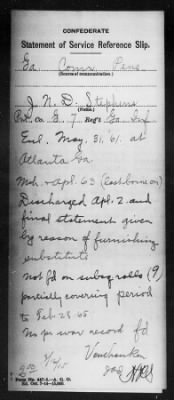 CONFEDERATE
Statement of Service Reference Slip.
Ga Comr Pens
(Source of communication.)
J. N. D. Stephens
(Name.)
Pvt. Co. E. 7 Reg't Ga. Inf
Enl. May. 31, '61. at
Atlanta Ga.
Mch-Apl. 63 (last borne on)
Discharged Apl. 2. and
final statement given
by reason of furnishing
substitute
Not fd on subsq rolls (9)
partially covering period
to Feb. 28. 65
No p.w. record fd